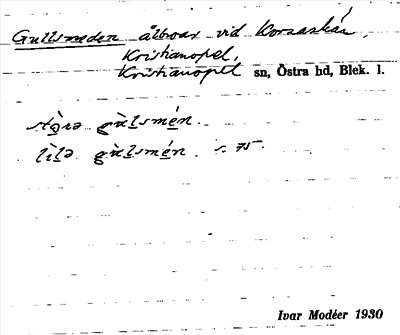 Gullsmeden ålboar vid Korsaskär,
Kristianopel,
Kristianopel sn, Östra hd, Blek. l.
stọ̀rə gùlsmén.
lìlə gùlsmén. s. 75.
Ivar Modéer 1930